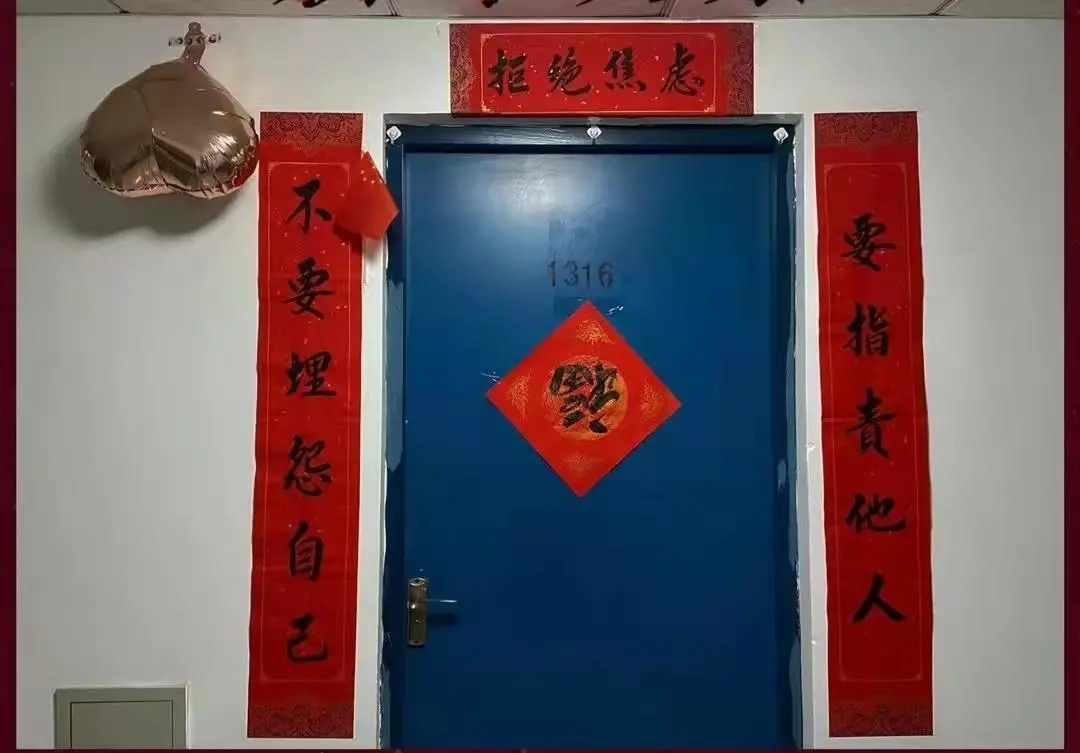 拒绝焦虑
不要埋怨自己
要指责他人
1316
福